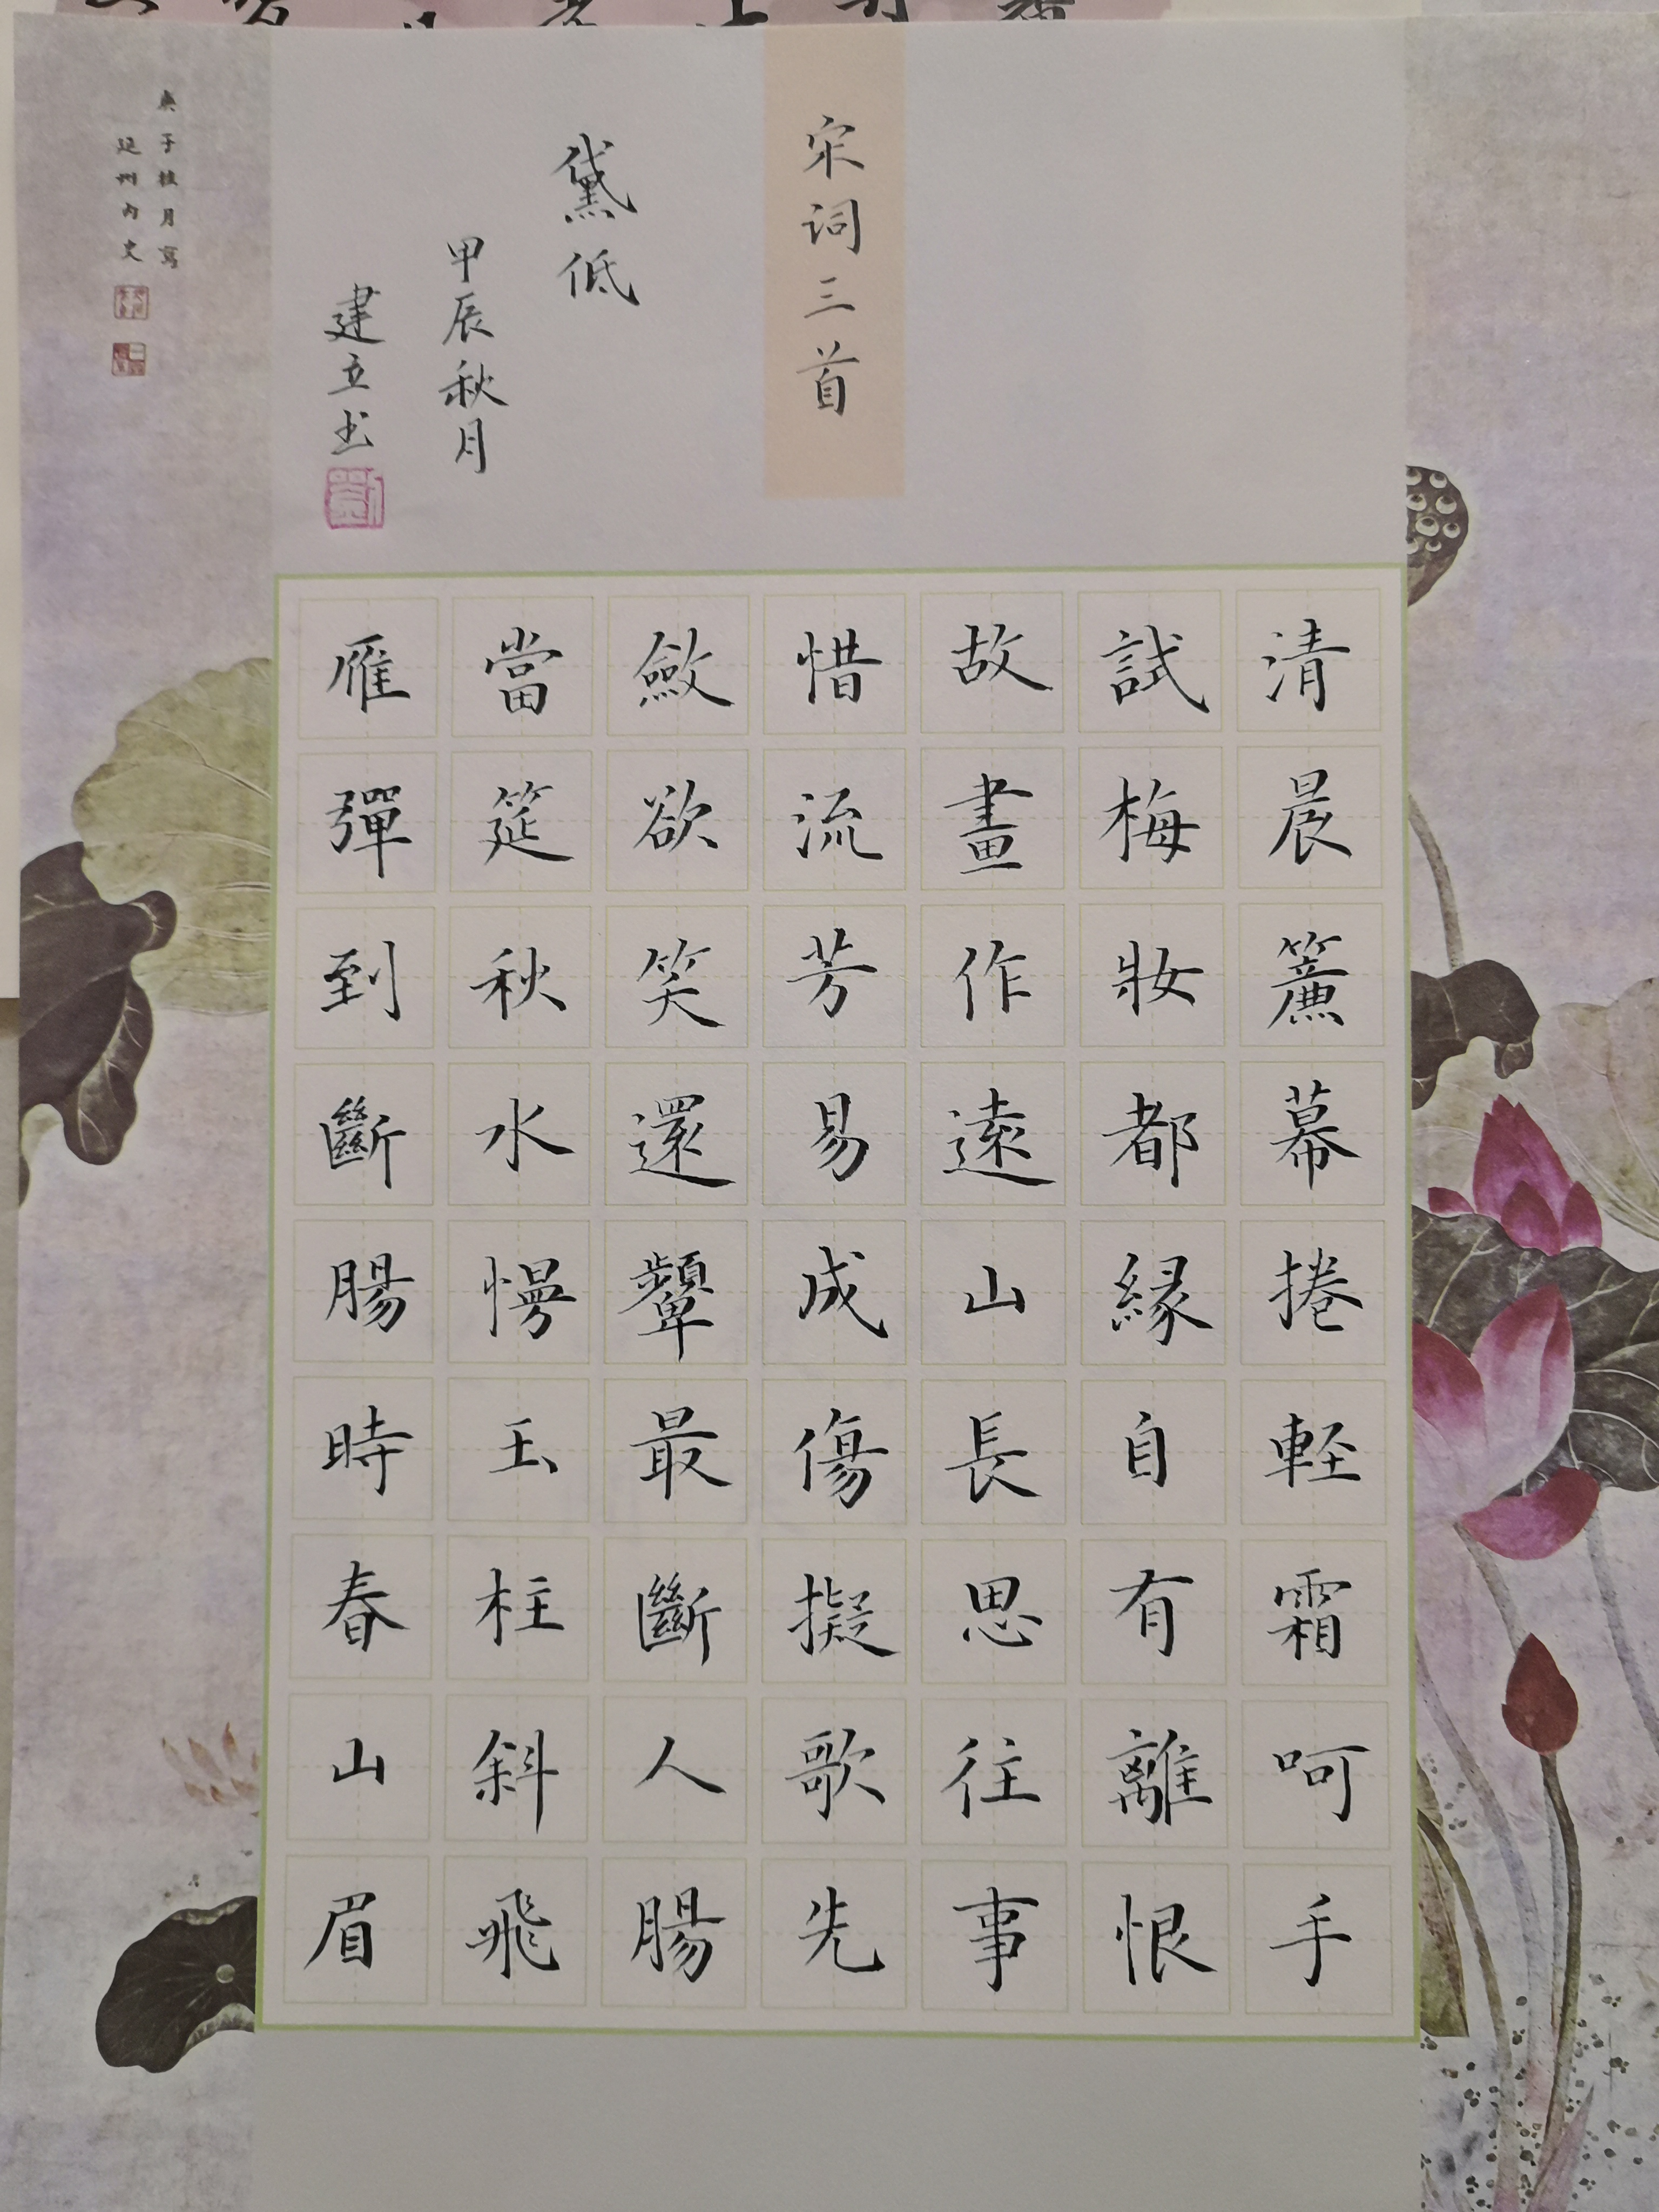 宋词三首
清晨簾幕捲輕霜呵手
試梅妝都緣自有離恨
故畫作遠山長思往事
惜流芳易成傷擬歌先
斂欲笑還顰最斷人腸
當筵秋水慢玉柱斜飛
雁彈到斷腸時春山眉
黛低
甲辰秋月
建立书
庚子桂月寫
延州内史